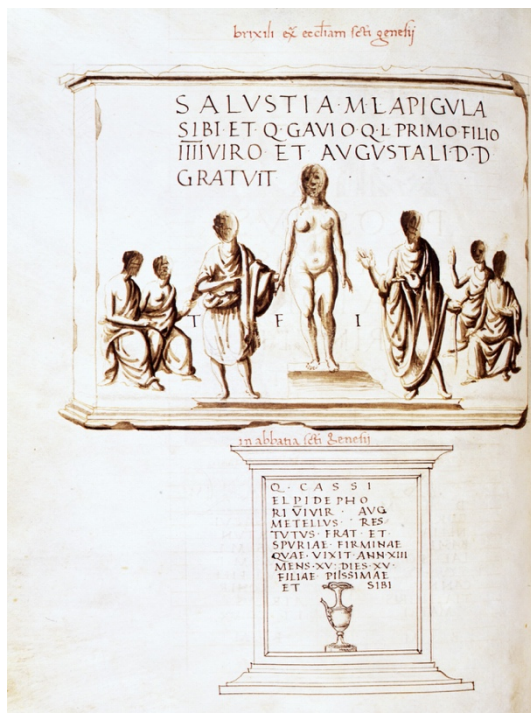 brixili ex eccliam scti genesij
SALVSTIA·M·L·APIGVLA
SIBI·ET·Q·GAVIO·Q·L·PRIMO·FILIO
IIIIVIRO·ET·AVGVSTALI·D·D
GRATVIT
T F I
in abbatia scti Genesij
Q · CASSI
ELPIDEPHO
RI V̄IVIR · AVG
METELIVS · RES
TVTVS · FRAT · ET
SPVRIAE · FIRMINAE
QVAE · VIXIT · ANN XIII
MENS · XV: DIES · XV ·
FILIAE PIISSIMAE
ET SIBI